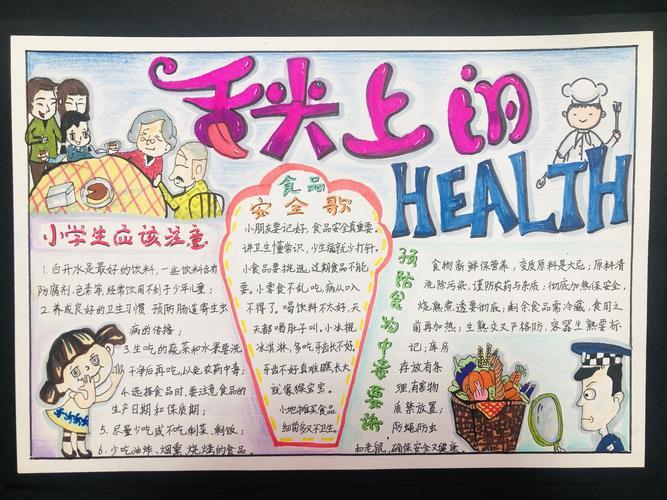 舌尖上的
HEALTH
小学生应该注意
1.白开水是最好的饮料,一些饮料含有
防腐剂、色素等,经常饮用不利于少年儿童;
2.养成良好的卫生习惯 预防肠道寄生虫
病的传播;
3.生吃的蔬菜和水果要洗
干净后再吃,以免农药中毒;
4.选择食品时,要注意食品的
生产日期和保质期;
5.尽量少吃或不吃剩菜、剩饭;
6.少吃油炸、烟熏、烧烤的食品。
食品
安全歌
小朋友要记好,食品安全真重要。
讲卫生懂常识,少生病就少打针。
小食品要挑选,过期食品不能
要。小零食不乱吃,病从口入
不得了。喝饮料不太好,天
天都喝肚子叫。小冰棍
冰淇淋,多吃牙齿长不好。
牙齿不好真难瞧,长大
就像猴宝宝。
小地摊买食品
细菌多又不卫生。
预防食物中毒要诀
食物新鲜保营养,变质原料是大忌;原料清
洗除污染,谨防农药与杂质;彻底加热保安全,
烧熟煮透要彻底;剩余食品需冷藏,食用之
前再加热;生熟交叉严格防,容器生熟要标
记;库房
存放有条
理,有害物
质禁放置;
防蝇防虫
和老鼠,确保安全又健康。